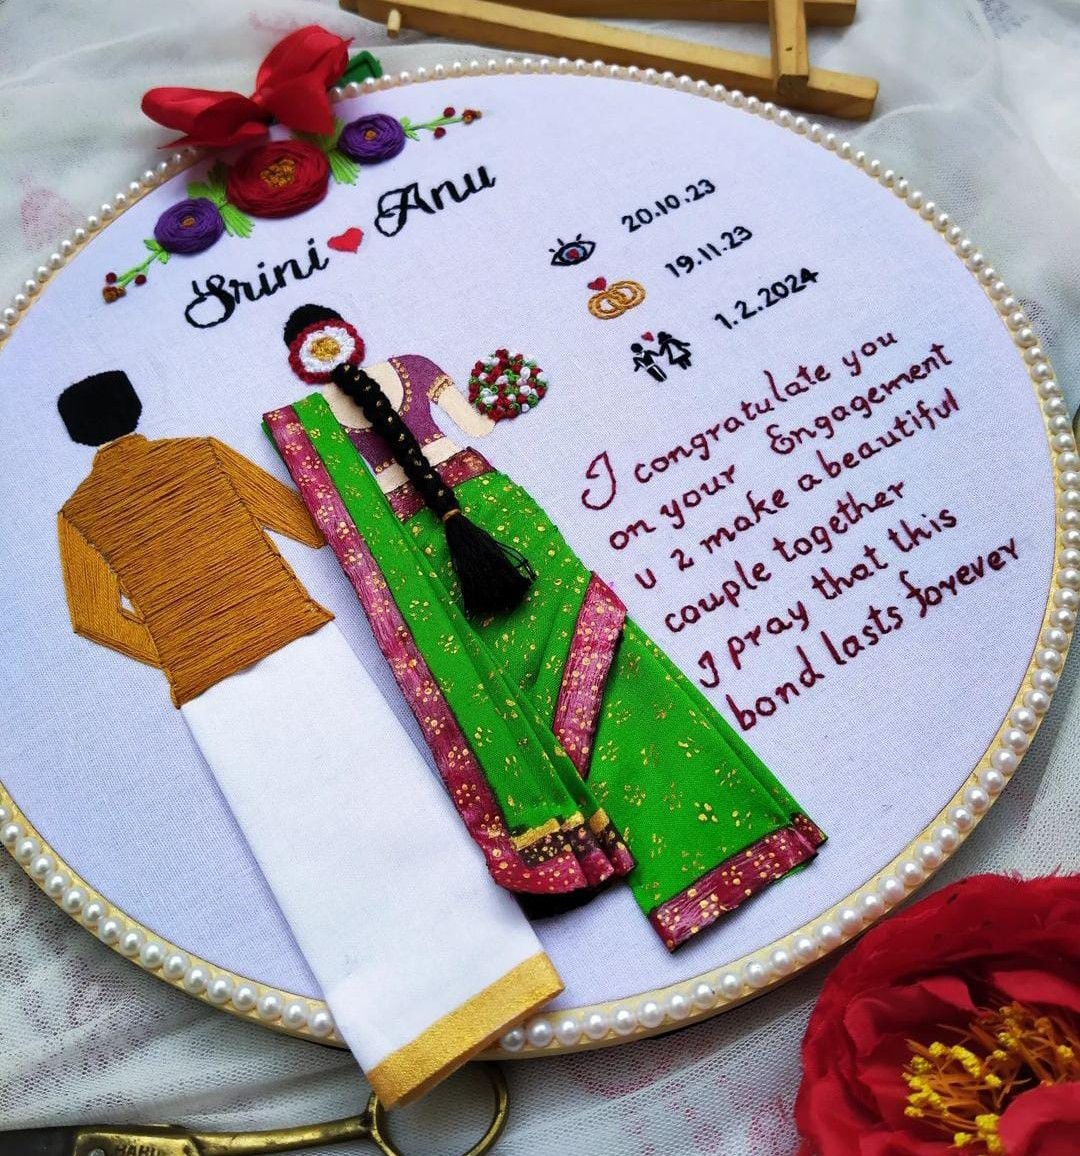 Srini Anu
20.10.23
19.11.23
1.2.2024
I congratulate you
on your Engagement
u 2 make a beautiful
couple together
I pray that this
bond lasts forever